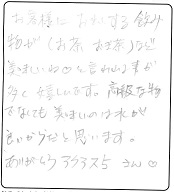 お客様にお出しする飲み
物が(お茶 お茶)など
美味しいね♡と言われる事が
多く嬉しいです。高級な物
でなくても美味しいのは水が
良いからだと思います。
ありがとう さん♡